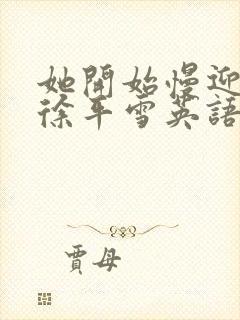 她開始慢迎
徐平雪英語
賈母